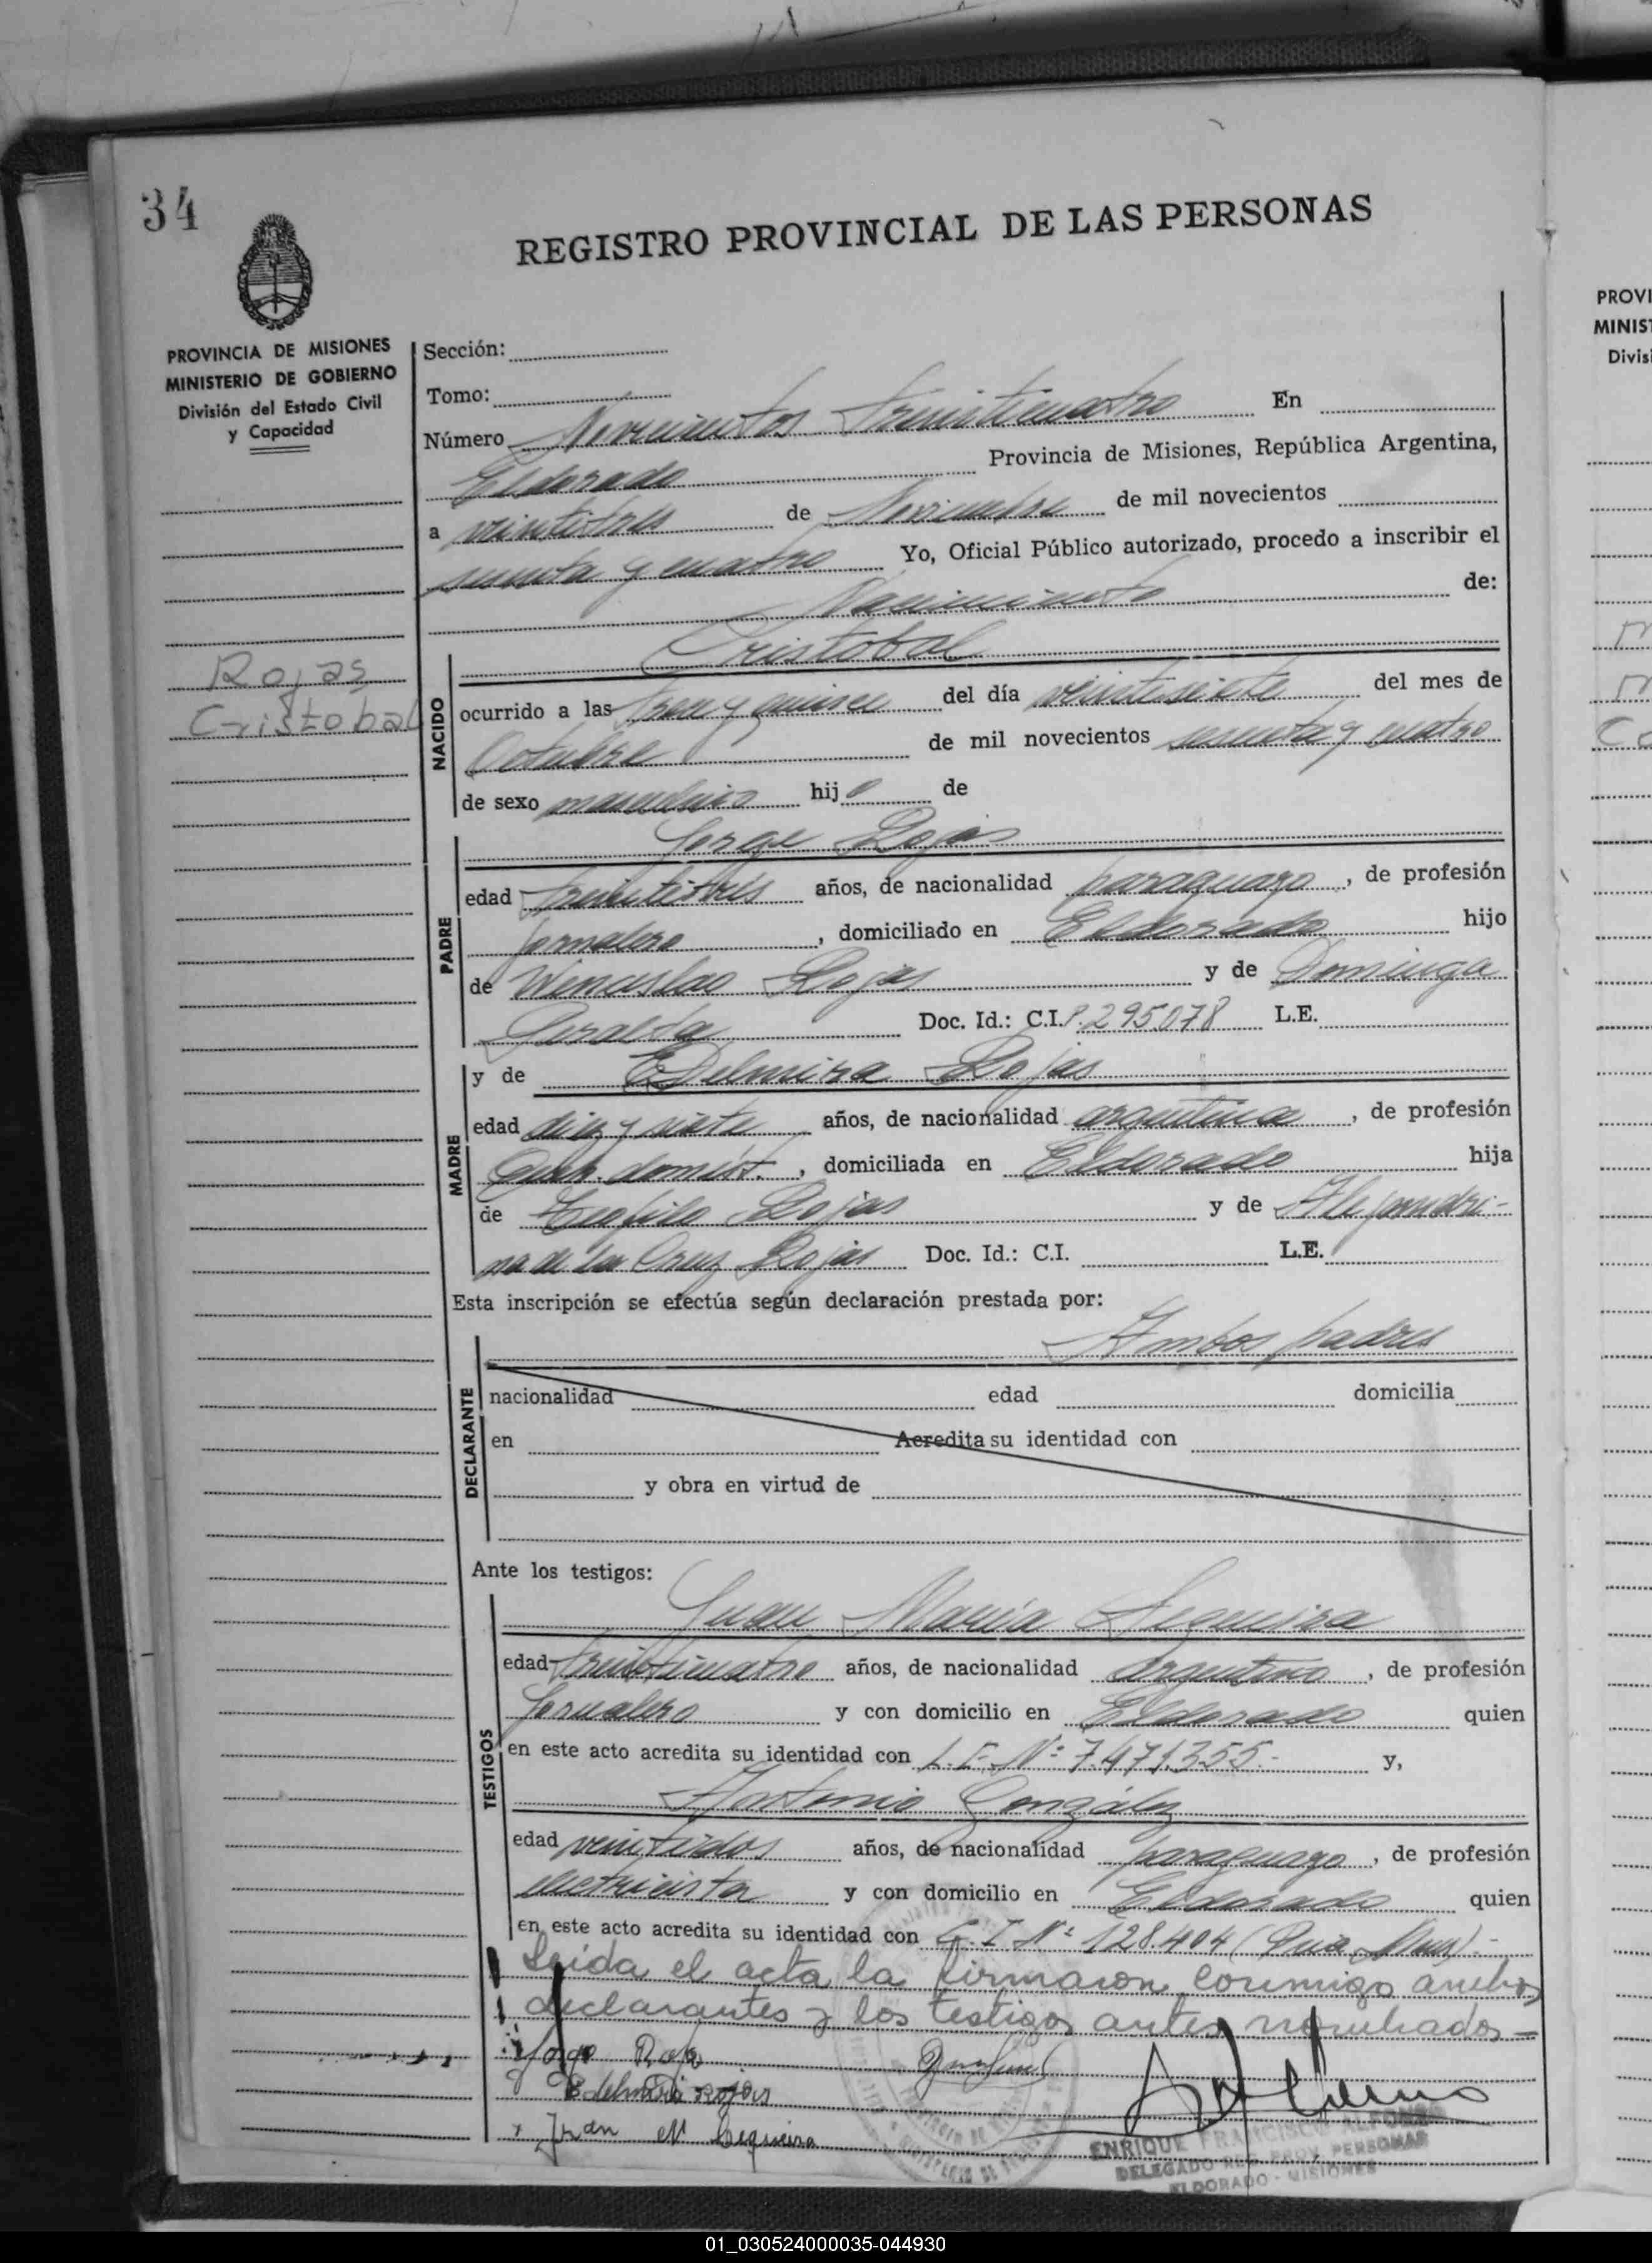 34
REGISTRO PROVINCIAL DE LAS PERSONAS
PROVINCIA DE MISIONES
MINISTERIO DE GOBIERNO
División del Estado Civil
y Capacidad
Rojas
Cristobal
Sección:
Tomo:
Número Novecientos treinticuatro En
Eldorado Provincia de Misiones, República Argentina,
a veintitres de Noviembre de mil novecientos
sesenta y cuatro Yo, Oficial Público autorizado, procedo a inscribir el
Nacimiento de:
NACIDO
Cristobal
ocurrido a las trece y quince del día veintisiete del mes de
Octubre de mil novecientos sesenta y cuatro
de sexo masculino hijo de
PADRE
Jorge Rojas
edad treintitrés años, de nacionalidad paraguayo, de profesión
jornalero, domiciliado en Eldorado hijo
de Wenceslao Rojas y de Dominga
Peralta Doc. Id.: C.I. P.295078 L.E.
MADRE
y de Edelmira Rojas
edad diez y siete años, de nacionalidad argentina, de profesión
Queh. domést., domiciliada en Eldorado hija
de Teofilo Rojas y de Alejandri-
na de la Cruz Rojas Doc. Id.: C.I. L.E.
Esta inscripción se efectúa según declaración prestada por:
DECLARANTE
Ambos padres
nacionalidad edad domicilia
en Acredita su identidad con
y obra en virtud de
Ante los testigos:
TESTIGOS
Juan María Sequeira
edad treinticuatro años, de nacionalidad argentino, de profesión
Jornalero y con domicilio en Eldorado quien
en este acto acredita su identidad con L.E. Nº 7.471.355.- y,
Antonio González
edad veintidos años, de nacionalidad paraguayo, de profesión
electricista y con domicilio en Eldorado quien
en este acto acredita su identidad con C.I Nº 128.404
Leida el acta la firmaron conmigo ambos
declarantes y los testigos antes nombrados-
Jorge Roja
Edelmira rojas
Juan M Sequeira
ENRIQUE FRANCISCO ALFONSO
DELEGADO REG. PROV. PERSONAS
ELDORADO - MISIONES
PROVI
MINIST
Divisi
01_030524000035-044930